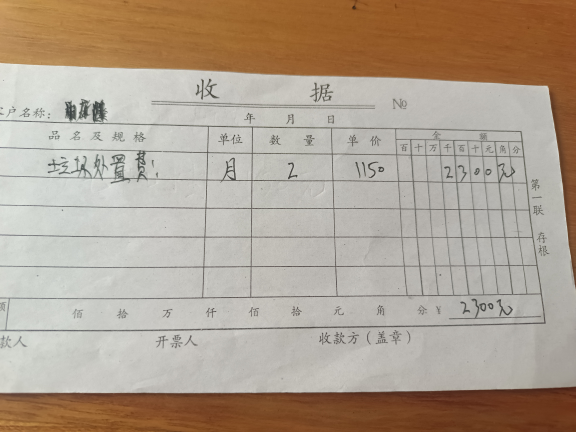 收 据
户名称: № 
年 月 日
品名及规格 单位 数量 单价 金额
百十万千百十元角分
垃圾处置费: 月 2 1150 2300元
第一联 存根
额 佰 拾 万 仟 佰 拾 元 角 分 ¥ 2300元
款人 开票人 收款方(盖章)